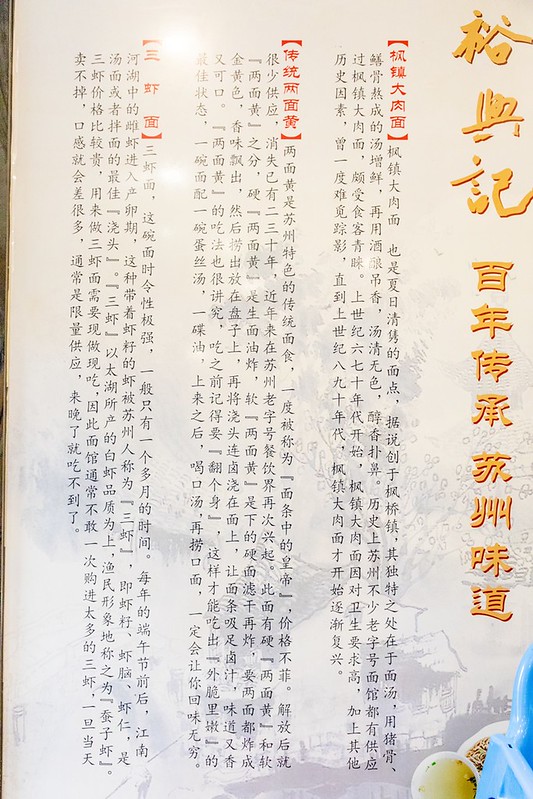 裕興記
百年传承苏州味道
【枫镇大肉面】枫镇大肉面 也是夏日清隽的面点，据说创于枫桥镇，其独特之处在于面汤，用猪骨、
鳝骨熬成的汤增鲜，再用酒酿吊香，汤清无色，醇香扑鼻。历史上苏州不少老字号面馆都有供应
过枫镇大肉面，颇受食客青睐。上世纪六七十年代开始，枫镇大肉面因对卫生要求高，加上其他
历史因素，曾一度难觅踪影，直到上世纪八九十年代，枫镇大肉面才开始逐渐复兴。
【传统两面黄】两面黄是苏州特色的传统面食，一度被称为『面条中的皇帝』，价格不菲。解放后就
很少供应，消失已有二三十年，近年来在苏州老字号餐饮界再次兴起。此面有硬『两面黄』和软
『两面黄』之分，硬『两面黄』是生面油炸，软『两面黄』是下的硬面滤干再炸，要两面都炸成
金黄色，香味飘出，然后捞出放在盘子上，再将浇头连卤浇在面上，让面条吸足卤汁，味道又香
又可口。『两面黄』的吃法也很讲究，吃之前记得要『翻个身』，这样才能吃出『外脆里嫩』的
最佳状态，一碗面配一碗蛋丝汤，一碟油，上来之后，喝口汤，再捞口面，一定会让你回味无穷。
【三 虾 面】三虾面，这碗面时令性极强，一般只有一个多月的时间。每年的端午节前后，江南
河湖中的雌虾进入产卵期，这种带着虾籽的虾被苏州人称为『三虾』，即虾籽、虾脑、虾仁，是
汤面或者拌面的最佳『浇头』。『三虾』以太湖所产的白虾品质为上，渔民形象地称之为『蚕子虾』。
三虾价格比较贵，用来做三虾面需要现做现吃，因此面馆通常不敢一次购进太多的三虾，一旦当天
卖不掉，口感就会差很多，通常是限量供应，来晚了就吃不到了。